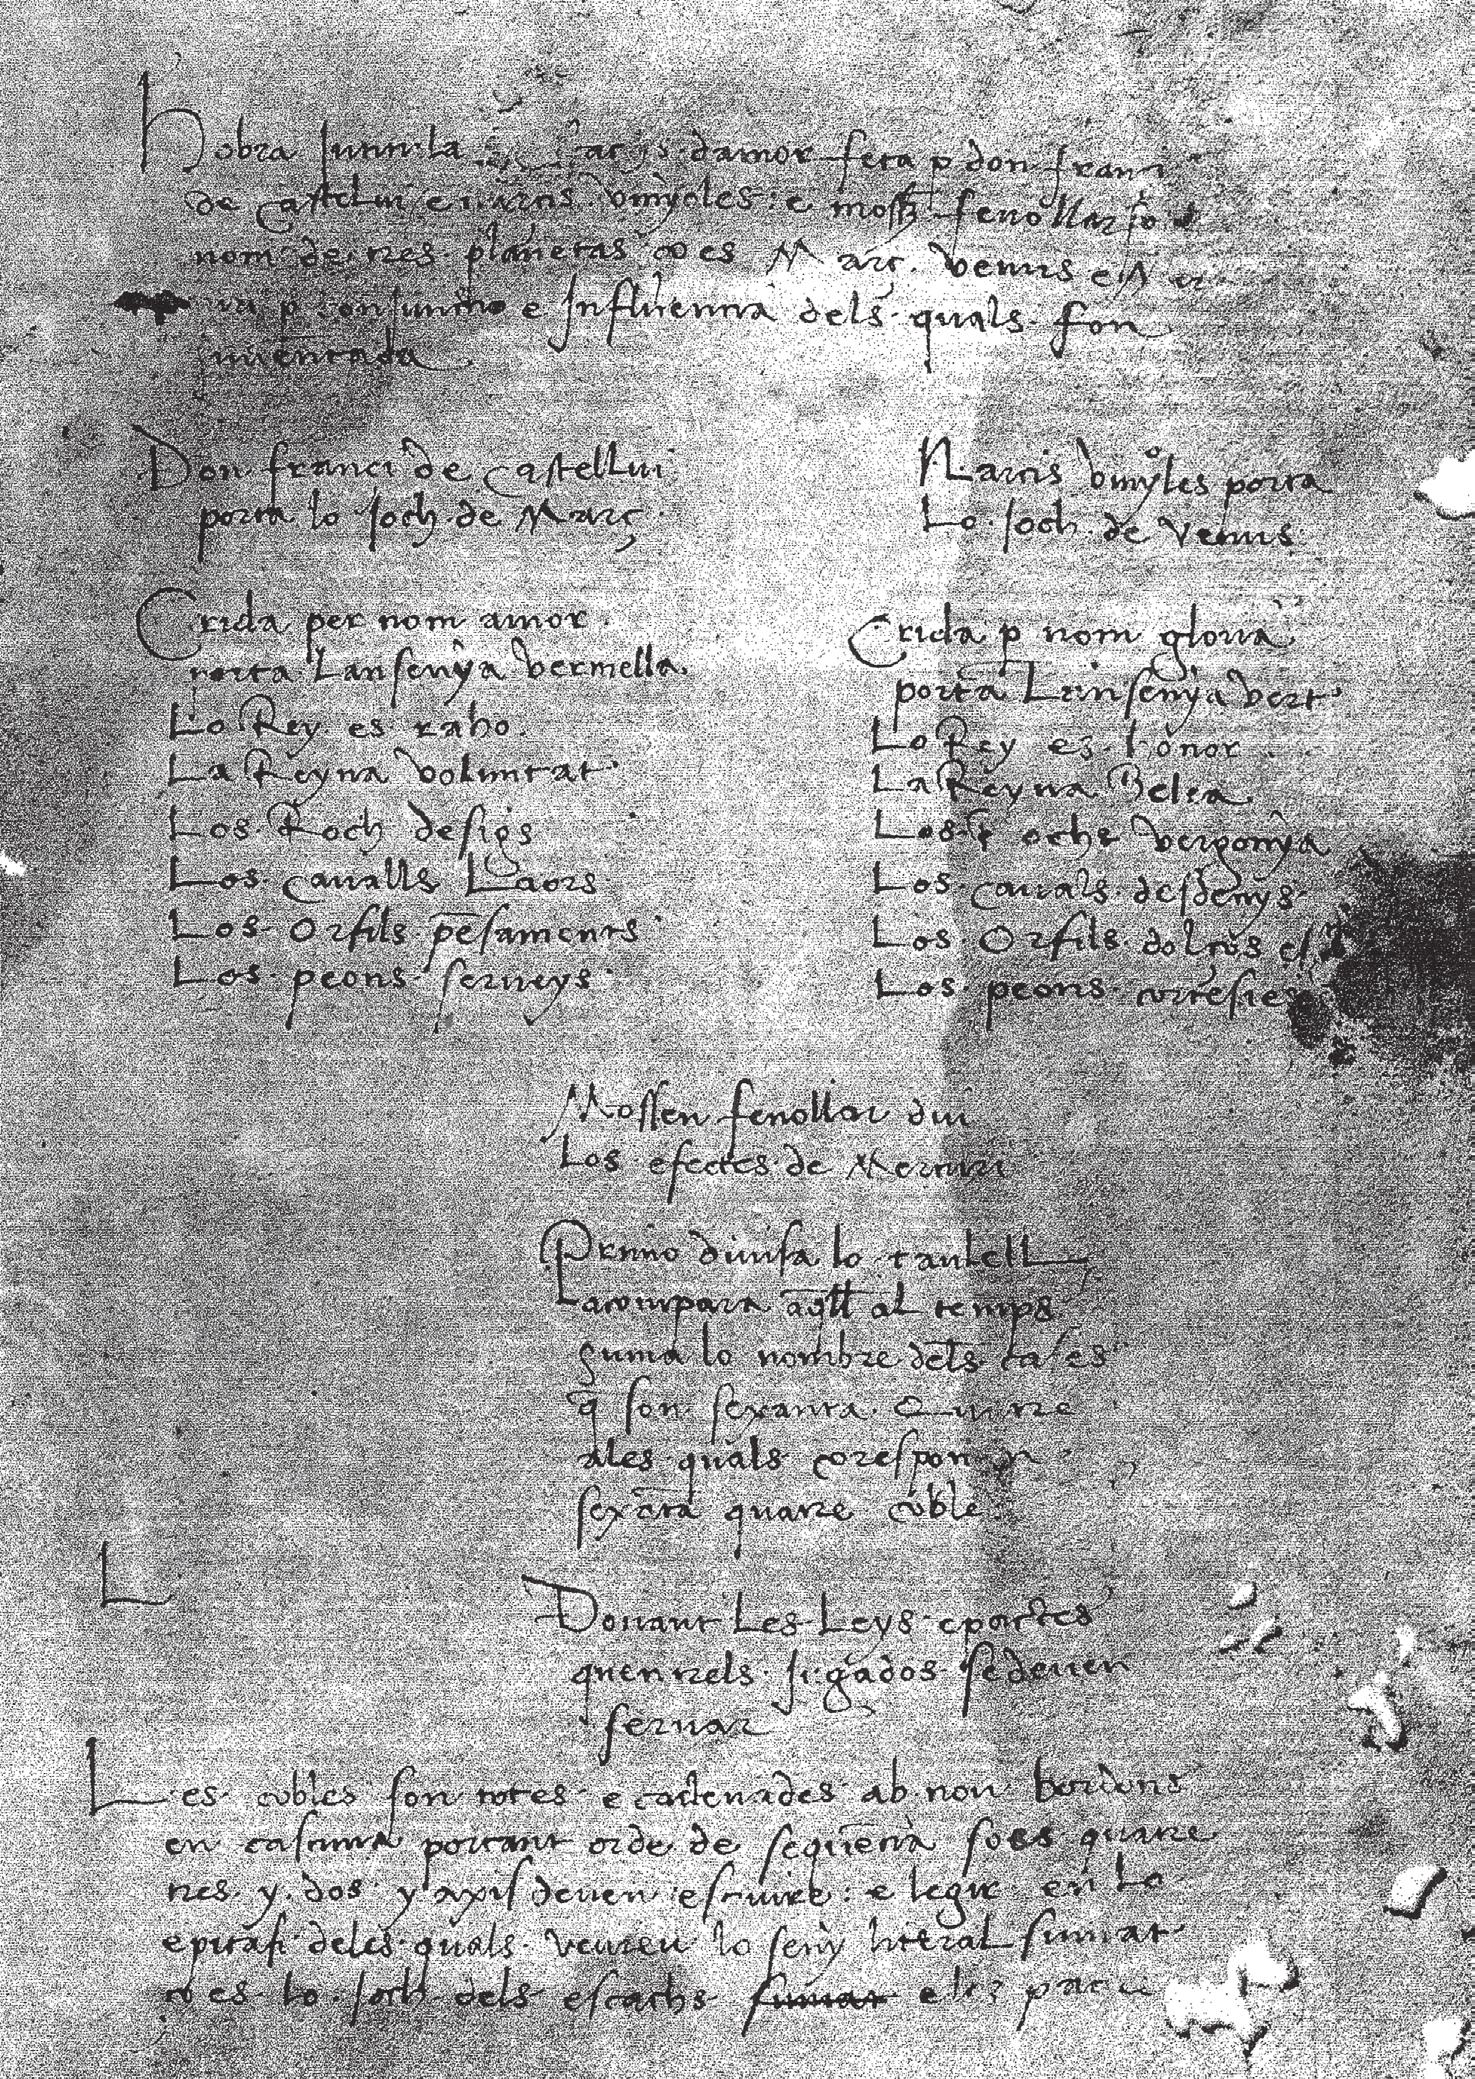 Hobra jnn&la scachs damor feta p don franci
de Castellui e narcis vinyoles : e moss fenollar so
nom de tres planetas co es Març. venus e Mer
curi p conjunctio e jnfluencia dels quals fon
jnuentada
Don franci de Castellui
porta lo joch de Març
Crida per nom amor
porta Lansenya vermella
Lo Rey es raho
La Reyna voluntat
Los Roch desigs
Los cauallS Laors
Los Orfils pēsaments
Los peons serueys
Narcis vinyoles porta
Lo joch de venus
Crida p nom gloria
porta Lansenya vert
Lo Rey es honor
La Reyna Belea
Los Rochs vergonya
Los cauals desdenys
Los Orfils dolços es
Los peons cortesies
Mossen fenollar diu
Los efectes de Mercuri
Primo diuisa lo taulell
acompara aqll al temps
suma lo nombre dels cases
q̄ son sexanta Quatre
ales quals corespon en
sexāta quatre coble
L
Donant Les Leys e pactes
quen tels jugados se deuen
seruar
Les cobles son totes encadenades ab nou bordons
en cascuna portant orde de sequēcia so es quatre
tres y dos y axi s deuen escriure : e legir en lo
epitafi deles quals veureu lo seny literal
co es lo joch dels escachs e les